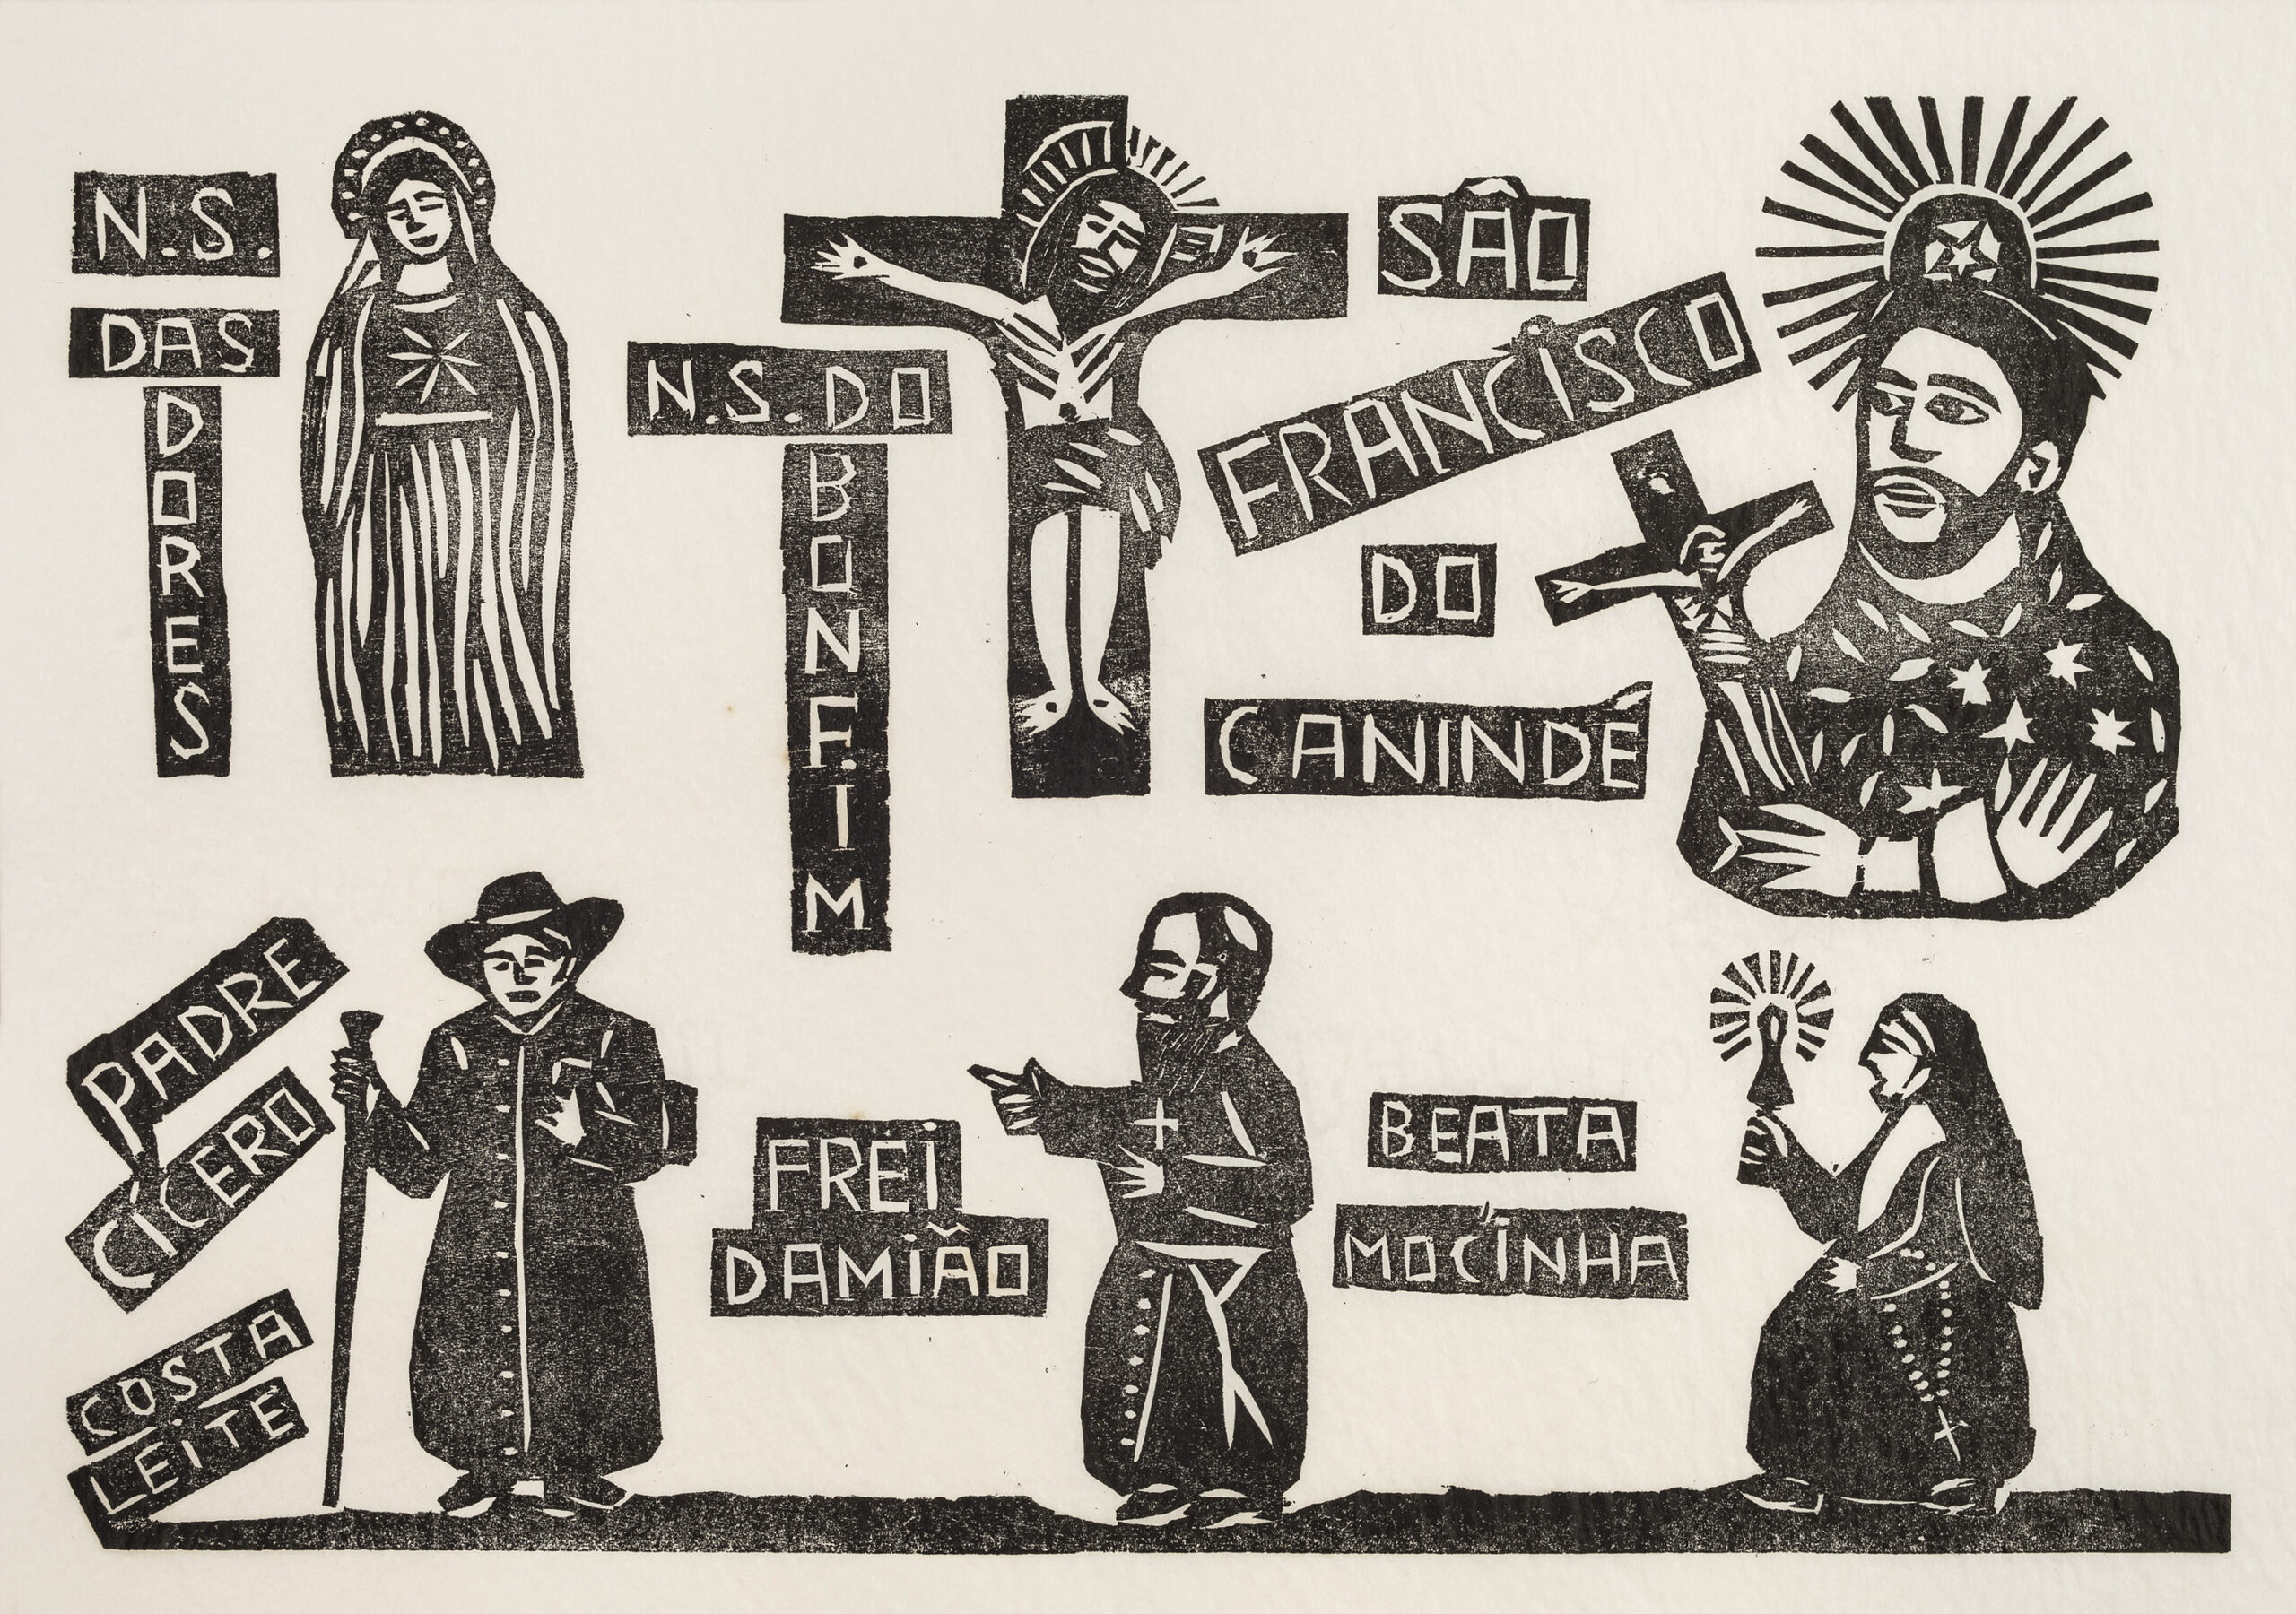 N.S.
DAS
DORES
N.S.DO
BONFIM
SÃO
FRANCISCO
DO
CANINDÉ
PADRE
CÍCERO
COSTA
LEITE
FREI
DAMIÃO
BEATA
MOCINHA